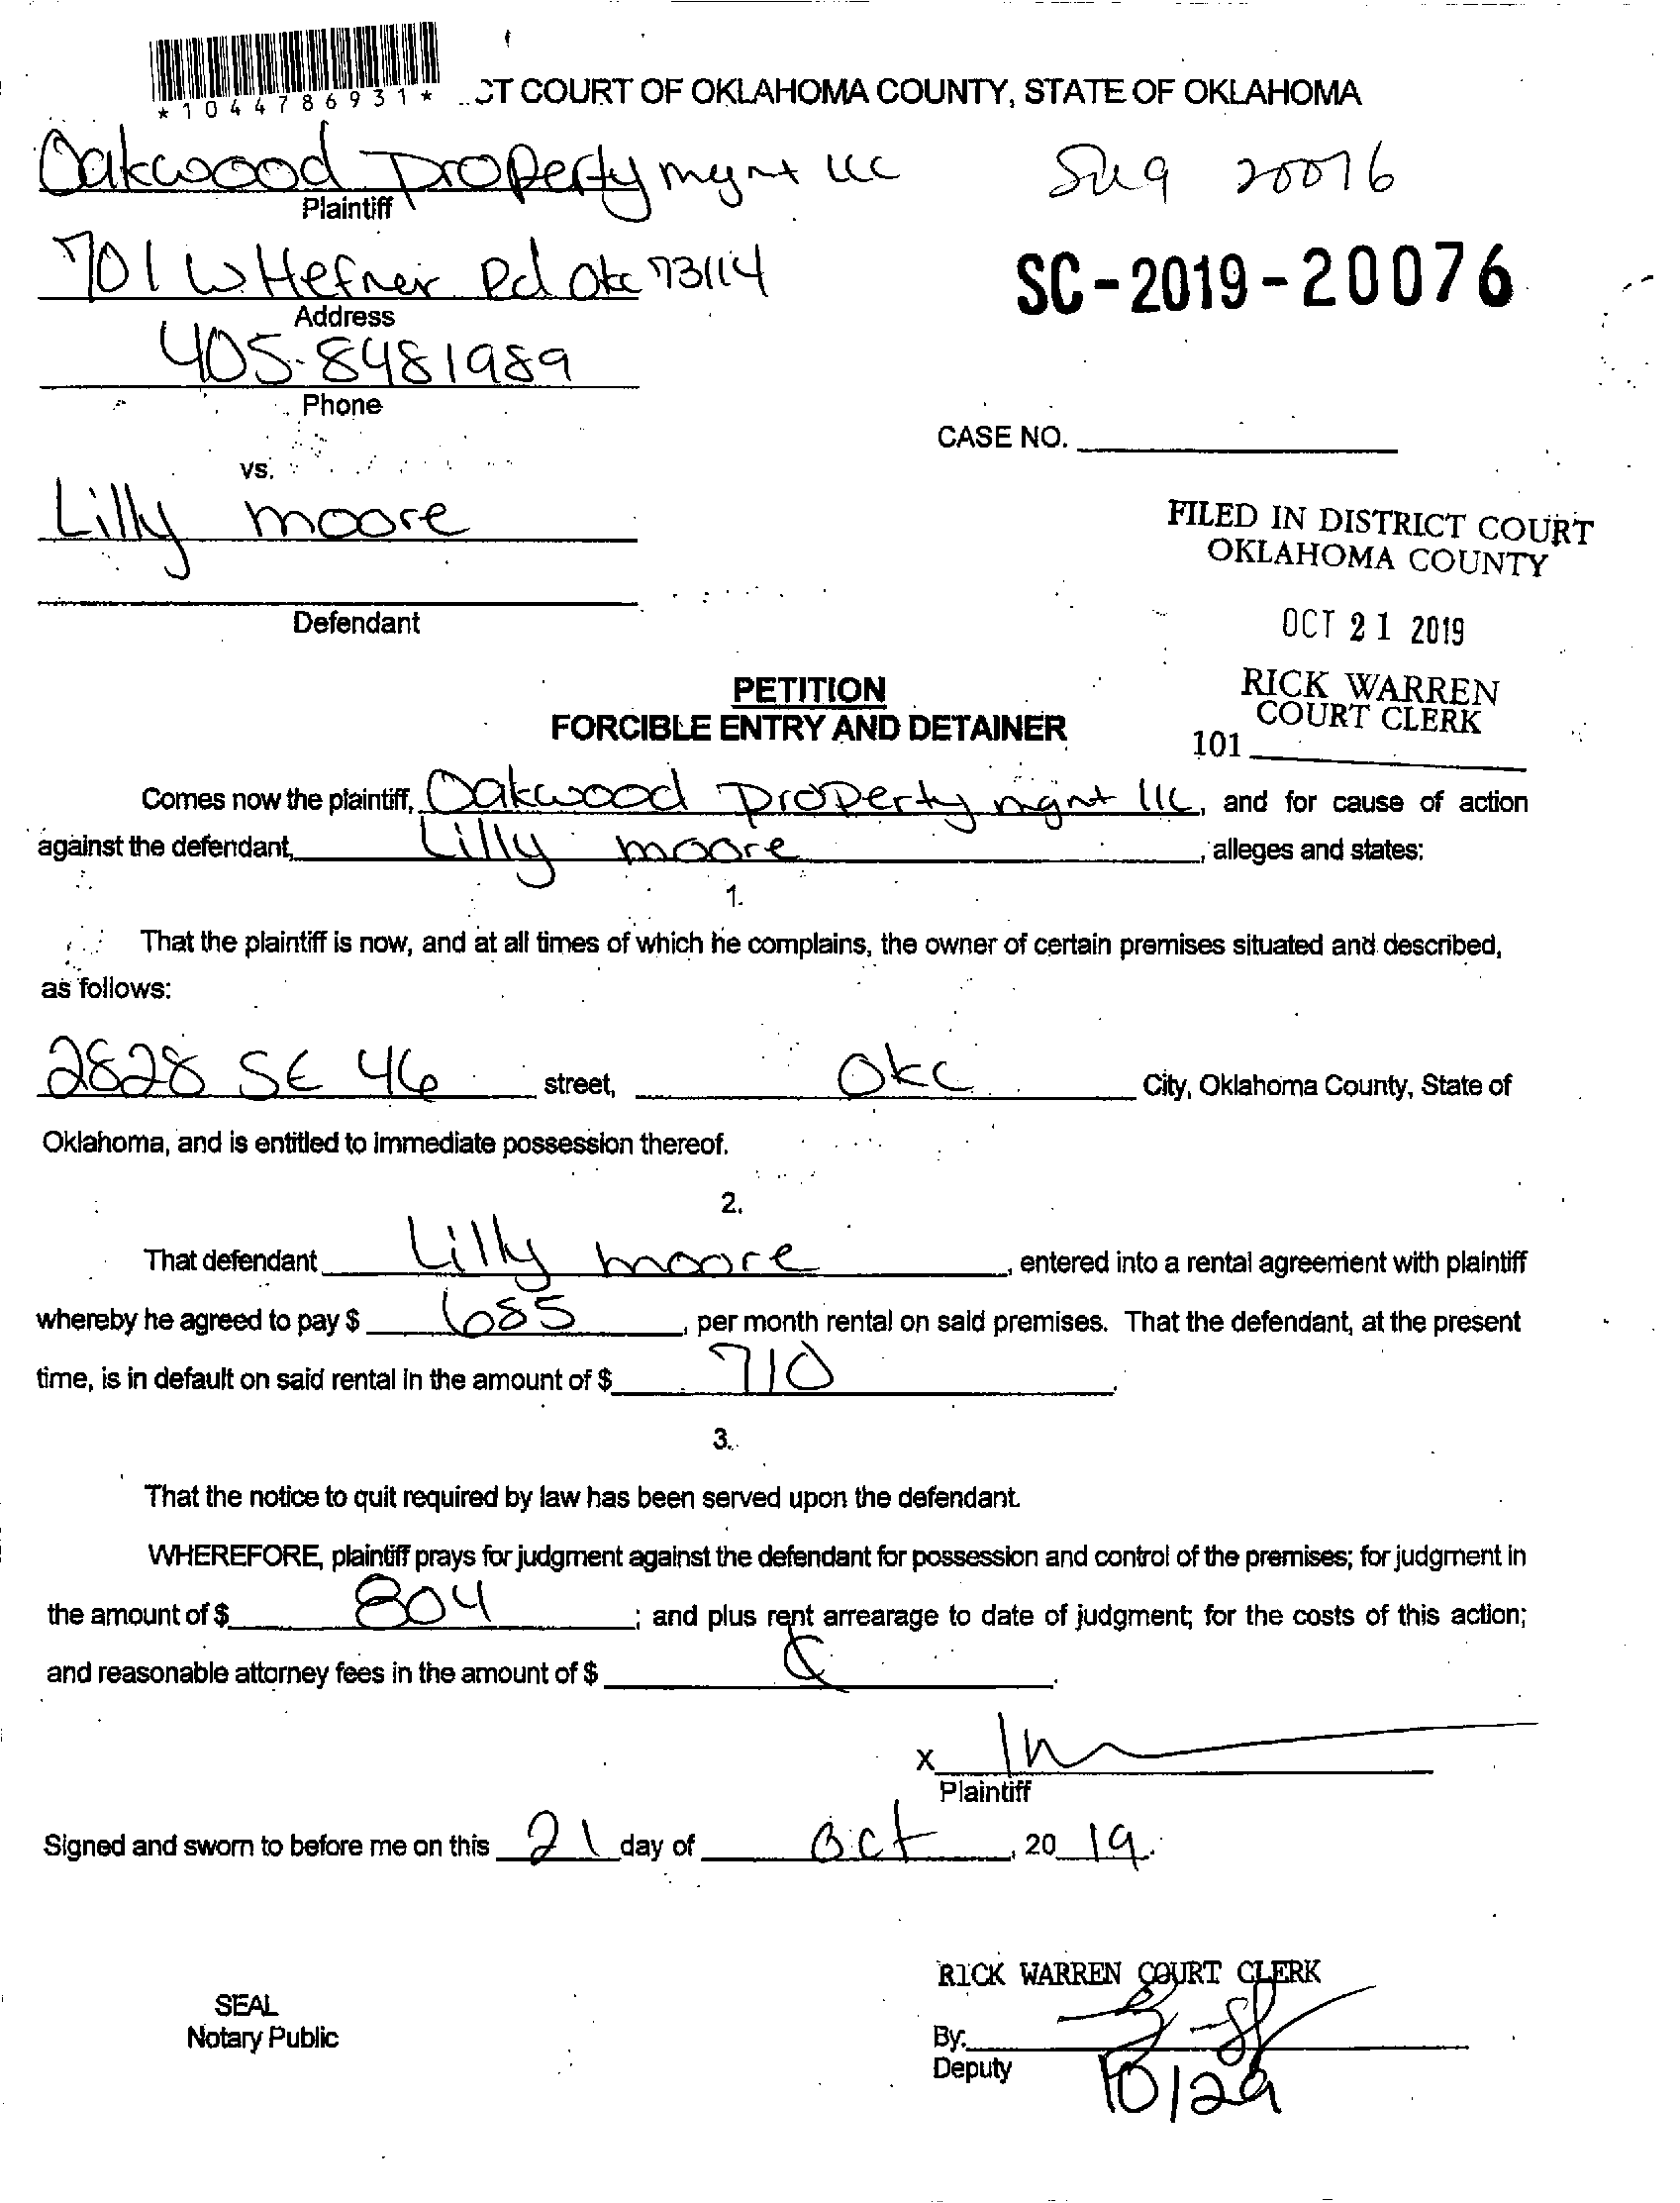 *1044786931*
CT COURT OF OKLAHOMA COUNTY, STATE OF OKLAHOMA
Oakwood Property mgnt llc
20076
Plaintiff
701 W Hefner Rd Okc 73114
SC-2019-20076
Address
405-8481989
Phone
CASE NO.
vs.
Lilly moore
FILED IN DISTRICT COURT
OKLAHOMA COUNTY
Defendant
OCT 21 2019
PETITION
RICK WARREN
FORCIBLE ENTRY AND DETAINER
COURT CLERK
101
Comes now the plaintiff, Oakwood Property mgnt llc, and for cause of action
against the defendant, Lilly moore, alleges and states:
1.
That the plaintiff is now, and at all times of which he complains, the owner of certain premises situated and described,
as follows:
2828 SE 46 street, Okc City, Oklahoma County, State of
Oklahoma, and is entitled to immediate possession thereof.
2.
That defendant Lilly moore, entered into a rental agreement with plaintiff
whereby he agreed to pay $ 685, per month rental on said premises. That the defendant, at the present
time, is in default on said rental in the amount of $ 710.
3.
That the notice to quit required by law has been served upon the defendant.
WHEREFORE, plaintiff prays for judgment against the defendant for possession and control of the premises; for judgment in
the amount of $ 804; and plus rent arrearage to date of judgment; for the costs of this action;
and reasonable attorney fees in the amount of $.
X
Plaintiff
Signed and sworn to before me on this 21 day of Oct, 20 19.
RICK WARREN COURT CLERK
SEAL
Notary Public
By:
Deputy
10/29